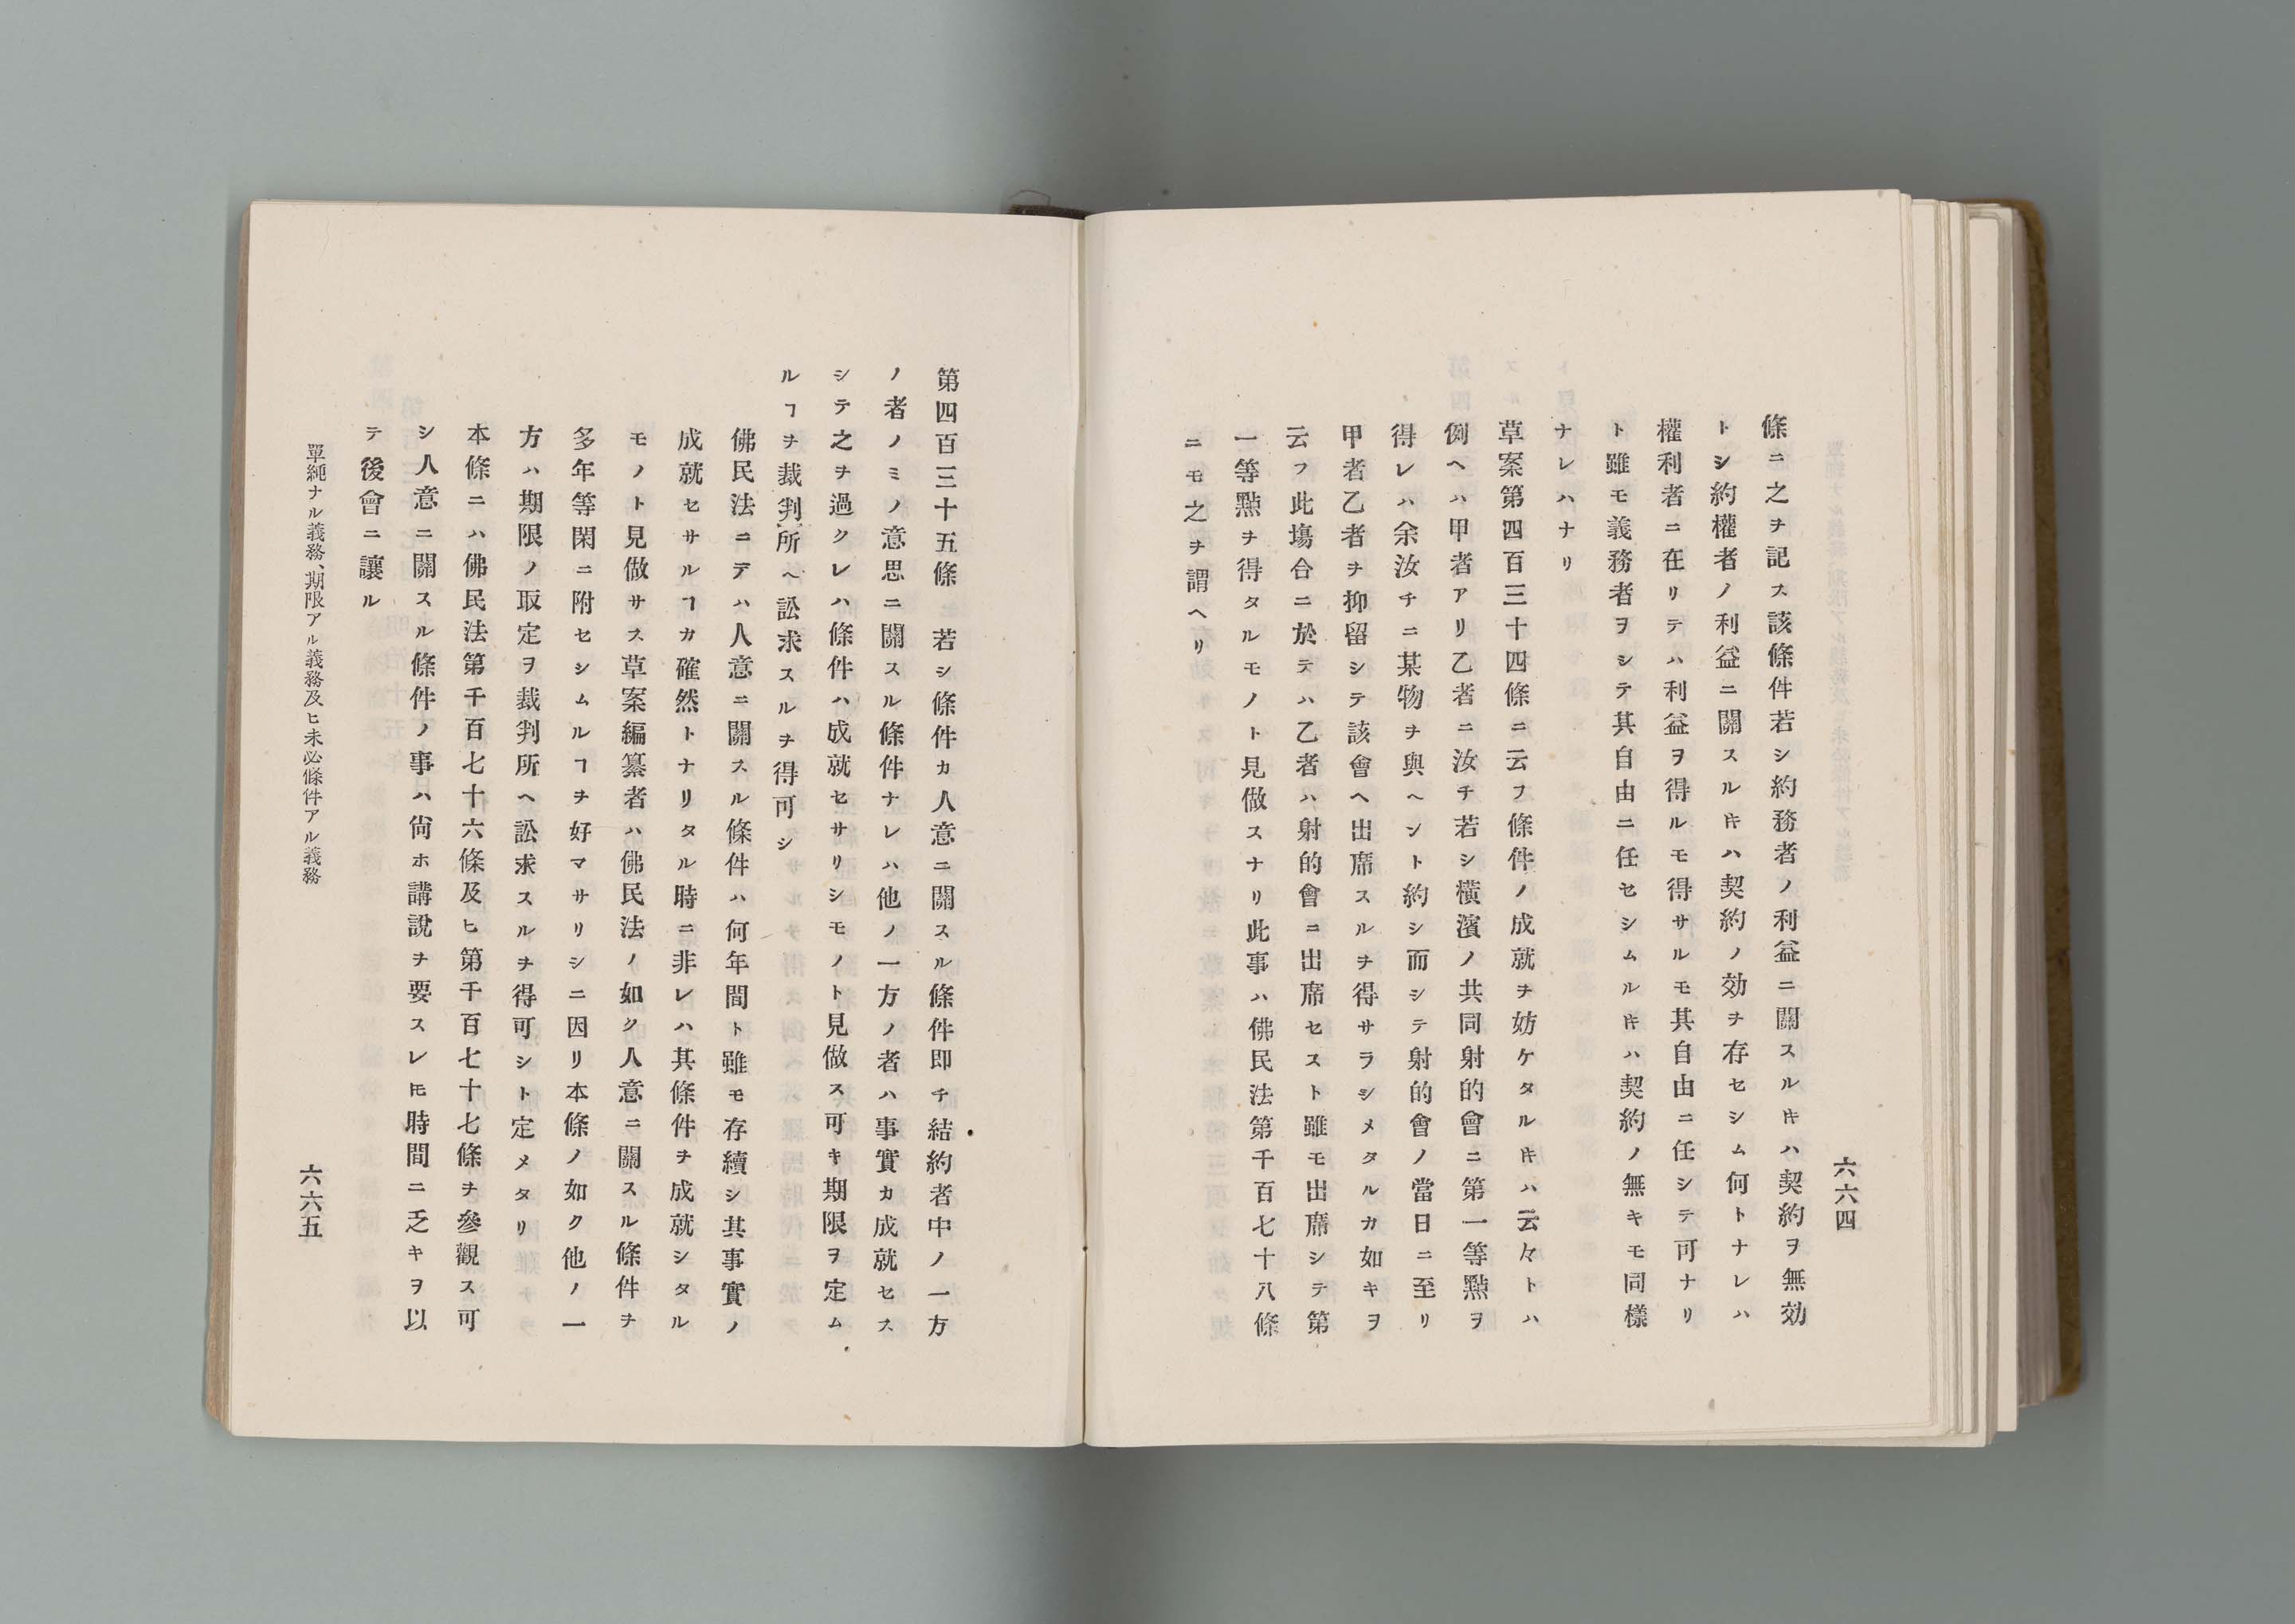 六六四
條ニ之ヲ記ス該條件若シ約務者ノ利益ニ關スルキハ契約ヲ無効
トシ約權者ノ利益ニ關スルキハ契約ノ効ヲ存セシム何トナレハ
權利者ニ在リテハ利益ヲ得ルモ得サルモ其自由ニ任シテ可ナリ
ト雖モ義務者ヲシテ其自由ニ任セシムルキハ契約ノ無キモ同樣
ナレハナリ
草案第四百三十四條ニ云フ條件ノ成就ヲ妨ケタルキハ云々トハ
例ヘハ甲者アリ乙者ニ汝チ若シ橫濱ノ共同射的會ニ第一等點ヲ
得レハ余汝チニ某物ヲ與ヘントト約シ而シテ射的會ノ當日ニ至リ
甲者乙者ヲ抑留シテ該會ヘ出席スルヲ得サラシメタルカ如キヲ
云フ此塲合ニ於テハ乙者ハ射的會ニ出席セスト雖モ出席シテ第
一等點ヲ得タルモノト見做スナリ此事ハ佛民法第千百七十八條
ニモ之ヲ謂ヘリ
第四百三十五條 若シ條件カ人意ニ關スル條件即チ結約者中ノ一方
ノ者ノミノ意思ニ關スル條件ナレハ他ノ一方ノ者ハ事實カ成就セス
シテ之ヲ過クレハ條件ハ成就セサリシモノト見做ス可キ期限ヲ定ム
ルヿヲ裁判所ヘ訟求スルヲ得可シ
佛民法ニテハ人意ニ關スル條件ハ何年間ト雖モ存續シ其事實ノ
成就セサルヿカ確然トナリタル時ニ非レハ其條件ヲ成就シタル
モノト見做サス草案編纂者ハ佛民法ノ如ク人意ニ關スル條件ヲ
多年等閑ニ附セシムルヿヲ好マサリシニ因リ本條ノ如ク他ノ一
方ハ期限ノ取定ヲ裁判所ヘ訟求スルヲ得可シト定メタリ
本條ニハ佛民法第千百七十六條及ヒ第千百七十七條ヲ參觀ス可
シ人意ニ關スル條件ノ事ハ尙ホ講說ヲ要スレ𪜈時間ニ乏キヲ以
テ後會ニ讓ル
單純ナル義務、期限アル義務及ヒ未必條件アル義務
六六五